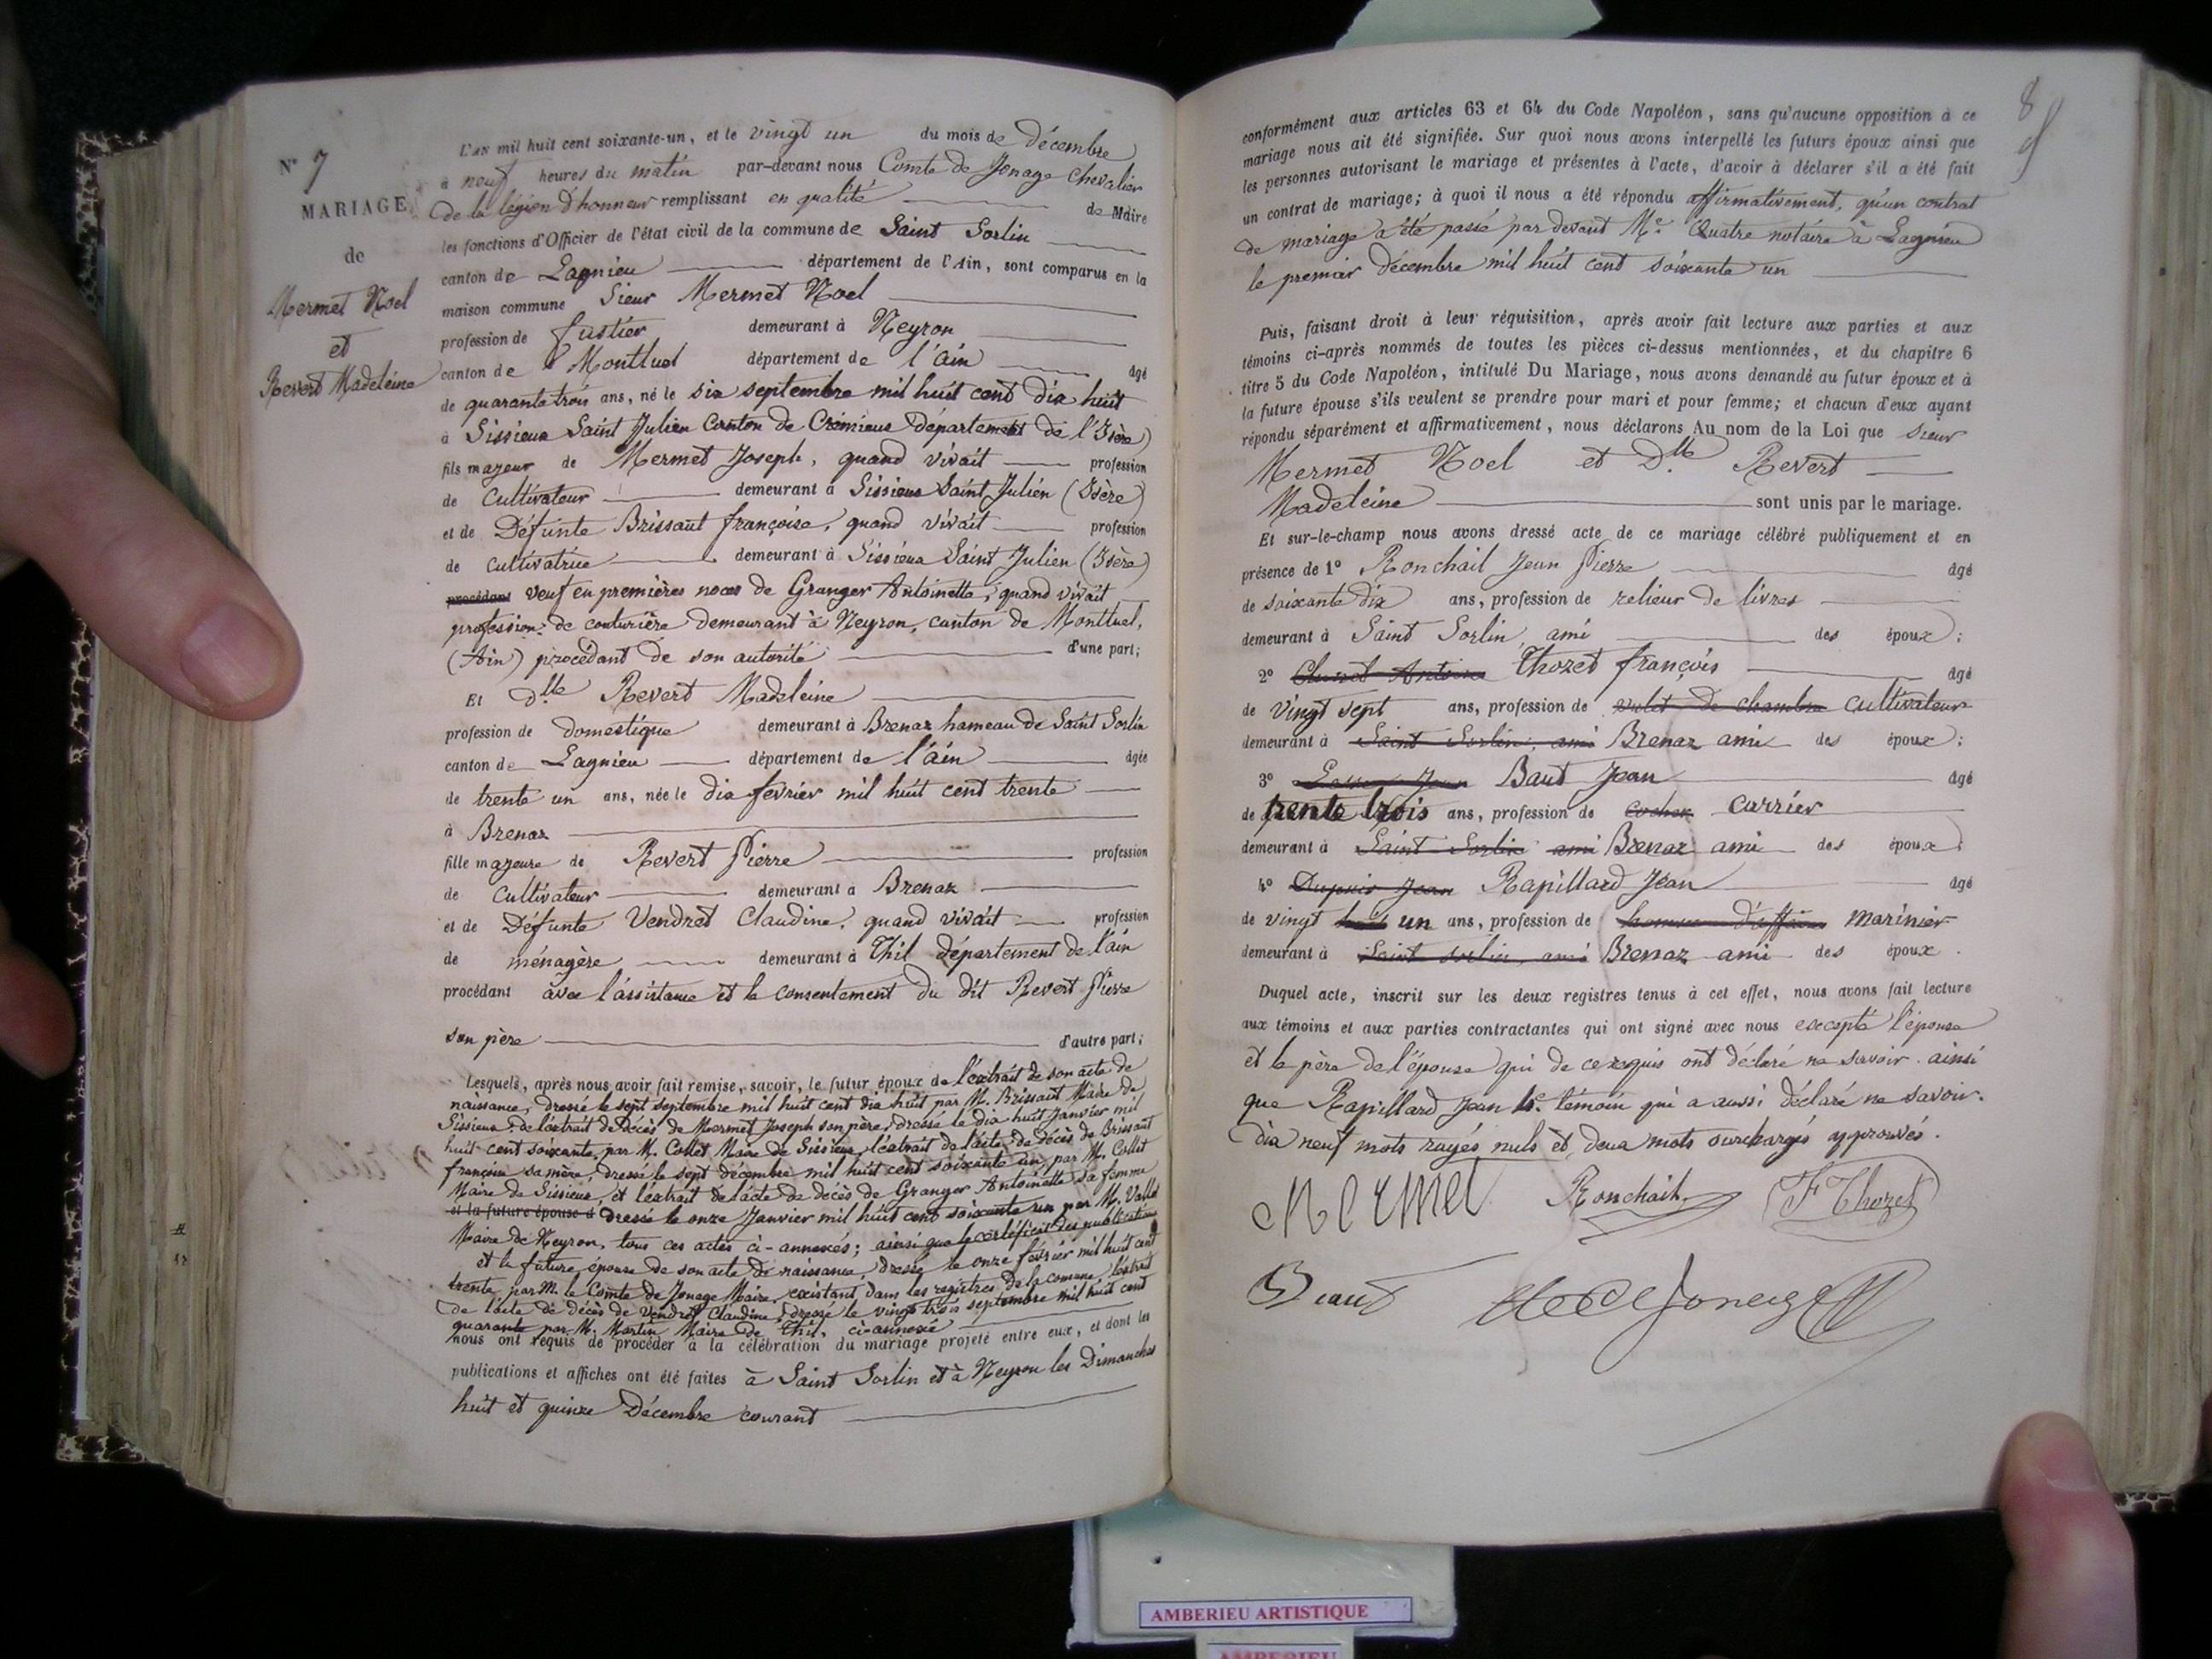 N° 7
MARIAGE
de
Mermet Noel
et
Revert Madeleine
L'AN mil huit cent soixante-un, et le vingt un du mois de décembre
à neuf heures du matin par-devant nous Comte de Jonage Chevalier
de la légion d'honneur remplissant en qualité de Maire
les fonctions d'Officier de l'état civil de la commune de Saint Sorlin
canton de Lagnieu département de l'Ain, sont comparus en la
maison commune Sieur Mermet Noel
profession de fustier demeurant à Neyron
canton de Montluel département de l'ain âgé
de quarante trois ans, né le six septembre mil huit cent dix huit
à Sissieux Saint Julien Canton de Crémieux Département de l'Isère)
fils majeur de Mermet Joseph, quand vivait profession
de Cultivateur demeurant à Sissieux Saint Julien (Isère)
et de Défunte Brissaut françoise, quand vivait profession
de cultivatrice demeurant à Sissieux Saint Julien (Isère)
procédant veuf en premières noces de Granger Antoinette, quand vivait
profession de couturière demeurant à Neyron, canton de Montluel,
(Ain) procédant de son autorité d'une part;
Et Dlle Revert Madeleine
profession de domestique demeurant à Brenaz hameau de Saint Sorlin
canton de Lagnieu département de l'ain âgée
de trente un ans, née le dix février mil huit cent trente
à Brenaz
fille majeure de Revert Pierre profession
de cultivateur demeurant à Brenaz
et de Défunte Vendret Claudine, quand vivait profession
de ménagère demeurant à Thil département de l'ain
procédant avec l'assistance et le consentement du dit Revert Pierre
son père d'autre part;
Lesquels, après nous avoir fait remise, savoir, le futur époux de l'extrait de son acte de
naissance, dressé le sept septembre mil huit cent dix huit par M. Brissaut Maire de
Sissieux, de l'extrait de Décès de Mermet Joseph son père, dressé le dix huit Janvier mil
huit cent soixante, par M. Collet Maire de Sissieux, l'extrait de l'acte de décès de Brissaut
françoise sa mère, dressé le sept décembre mil huit cent soixante un, par M. Collet
Maire de Sissieux, et l'extrait de l'acte de décès de Granger Antoinette sa femme
et la future épouse d dressé le onze Janvier mil huit cent soixante un par M. Vallet
Maire de Neyron, tous ces actes ci-annexés; ainsi que le certificat des publications
et la future épouse de son acte de naissance, dressé le onze février mil huit cent
trente par M. le Comte de Jonage Maire, existant dans les registres de la commune, l'extrait
de l'acte de décès de Vendret Claudine, dressé le vingt trois septembre mil huit cent
quarante par M. Martin Maire de Thil, ci-annexé
nous ont requis de procéder à la célébration du mariage projeté entre eux, et dont les
publications et affiches ont été faites à Saint Sorlin et à Neyron les Dimanches
huit et quinze Décembre courant
8
conformément aux articles 63 et 64 du Code Napoléon, sans qu'aucune opposition à ce
mariage nous ait été signifiée. Sur quoi nous avons interpellé les futurs époux ainsi que
les personnes autorisant le mariage et présentes à l'acte, d'avoir à déclarer s'il a été fait
un contrat de mariage; à quoi il nous a été répondu affirmativement, qu'un contrat
de mariage a été passé par devant Me Quatre notaire à Lagnieu
le premier décembre mil huit cent soixante un
Puis, faisant droit à leur réquisition, après avoir fait lecture aux parties et aux
témoins ci-après nommés de toutes les pièces ci-dessus mentionnées, et du chapitre 6
titre 5 du Code Napoléon, intitulé Du Mariage, nous avons demandé au futur époux et à
la future épouse s'ils veulent se prendre pour mari et pour femme; et chacun d'eux ayant
répondu séparément et affirmativement, nous déclarons Au nom de la Loi que sieur
Mermet Noel et Dlle Revert
Madeleine sont unis par le mariage.
Et sur-le-champ nous avons dressé acte de ce mariage célébré publiquement et en
présence de 1° Ronchail Jean Pierre âgé
de soixante dix ans, profession de relieur de livres
demeurant à Saint Sorlin, ami des époux;
2° Thozet françois âgé
de vingt sept ans, profession de valet de chambre cultivateur
demeurant à Saint Sorlin, ami Brenaz ami des époux;
3° Baut Jean âgé
de trente trois ans, profession de cocher carrier
demeurant à Saint Sorlin ami Brenaz ami des époux;
4° Dupuis Jean Rapillard Jean âgé
de vingt un ans, profession de homme d'affaires marinier
demeurant à Saint sorlin, ami Brenaz ami des époux.
Duquel acte, inscrit sur les deux registres tenus à cet effet, nous avons fait lecture
aux témoins et aux parties contractantes qui ont signé avec nous excepté l'épouse
et le père de l'épouse qui de ce requis ont déclaré ne savoir. ainsi
que Rapillard Jean 4e témoin qui a aussi déclaré ne savoir.
dix neuf mots rayés nuls et deux mots surchargés approuvés.
Mermet Ronchail F Thozet
Baut de Jonage
AMBERIEU ARTISTIQUE
AMBERIEU